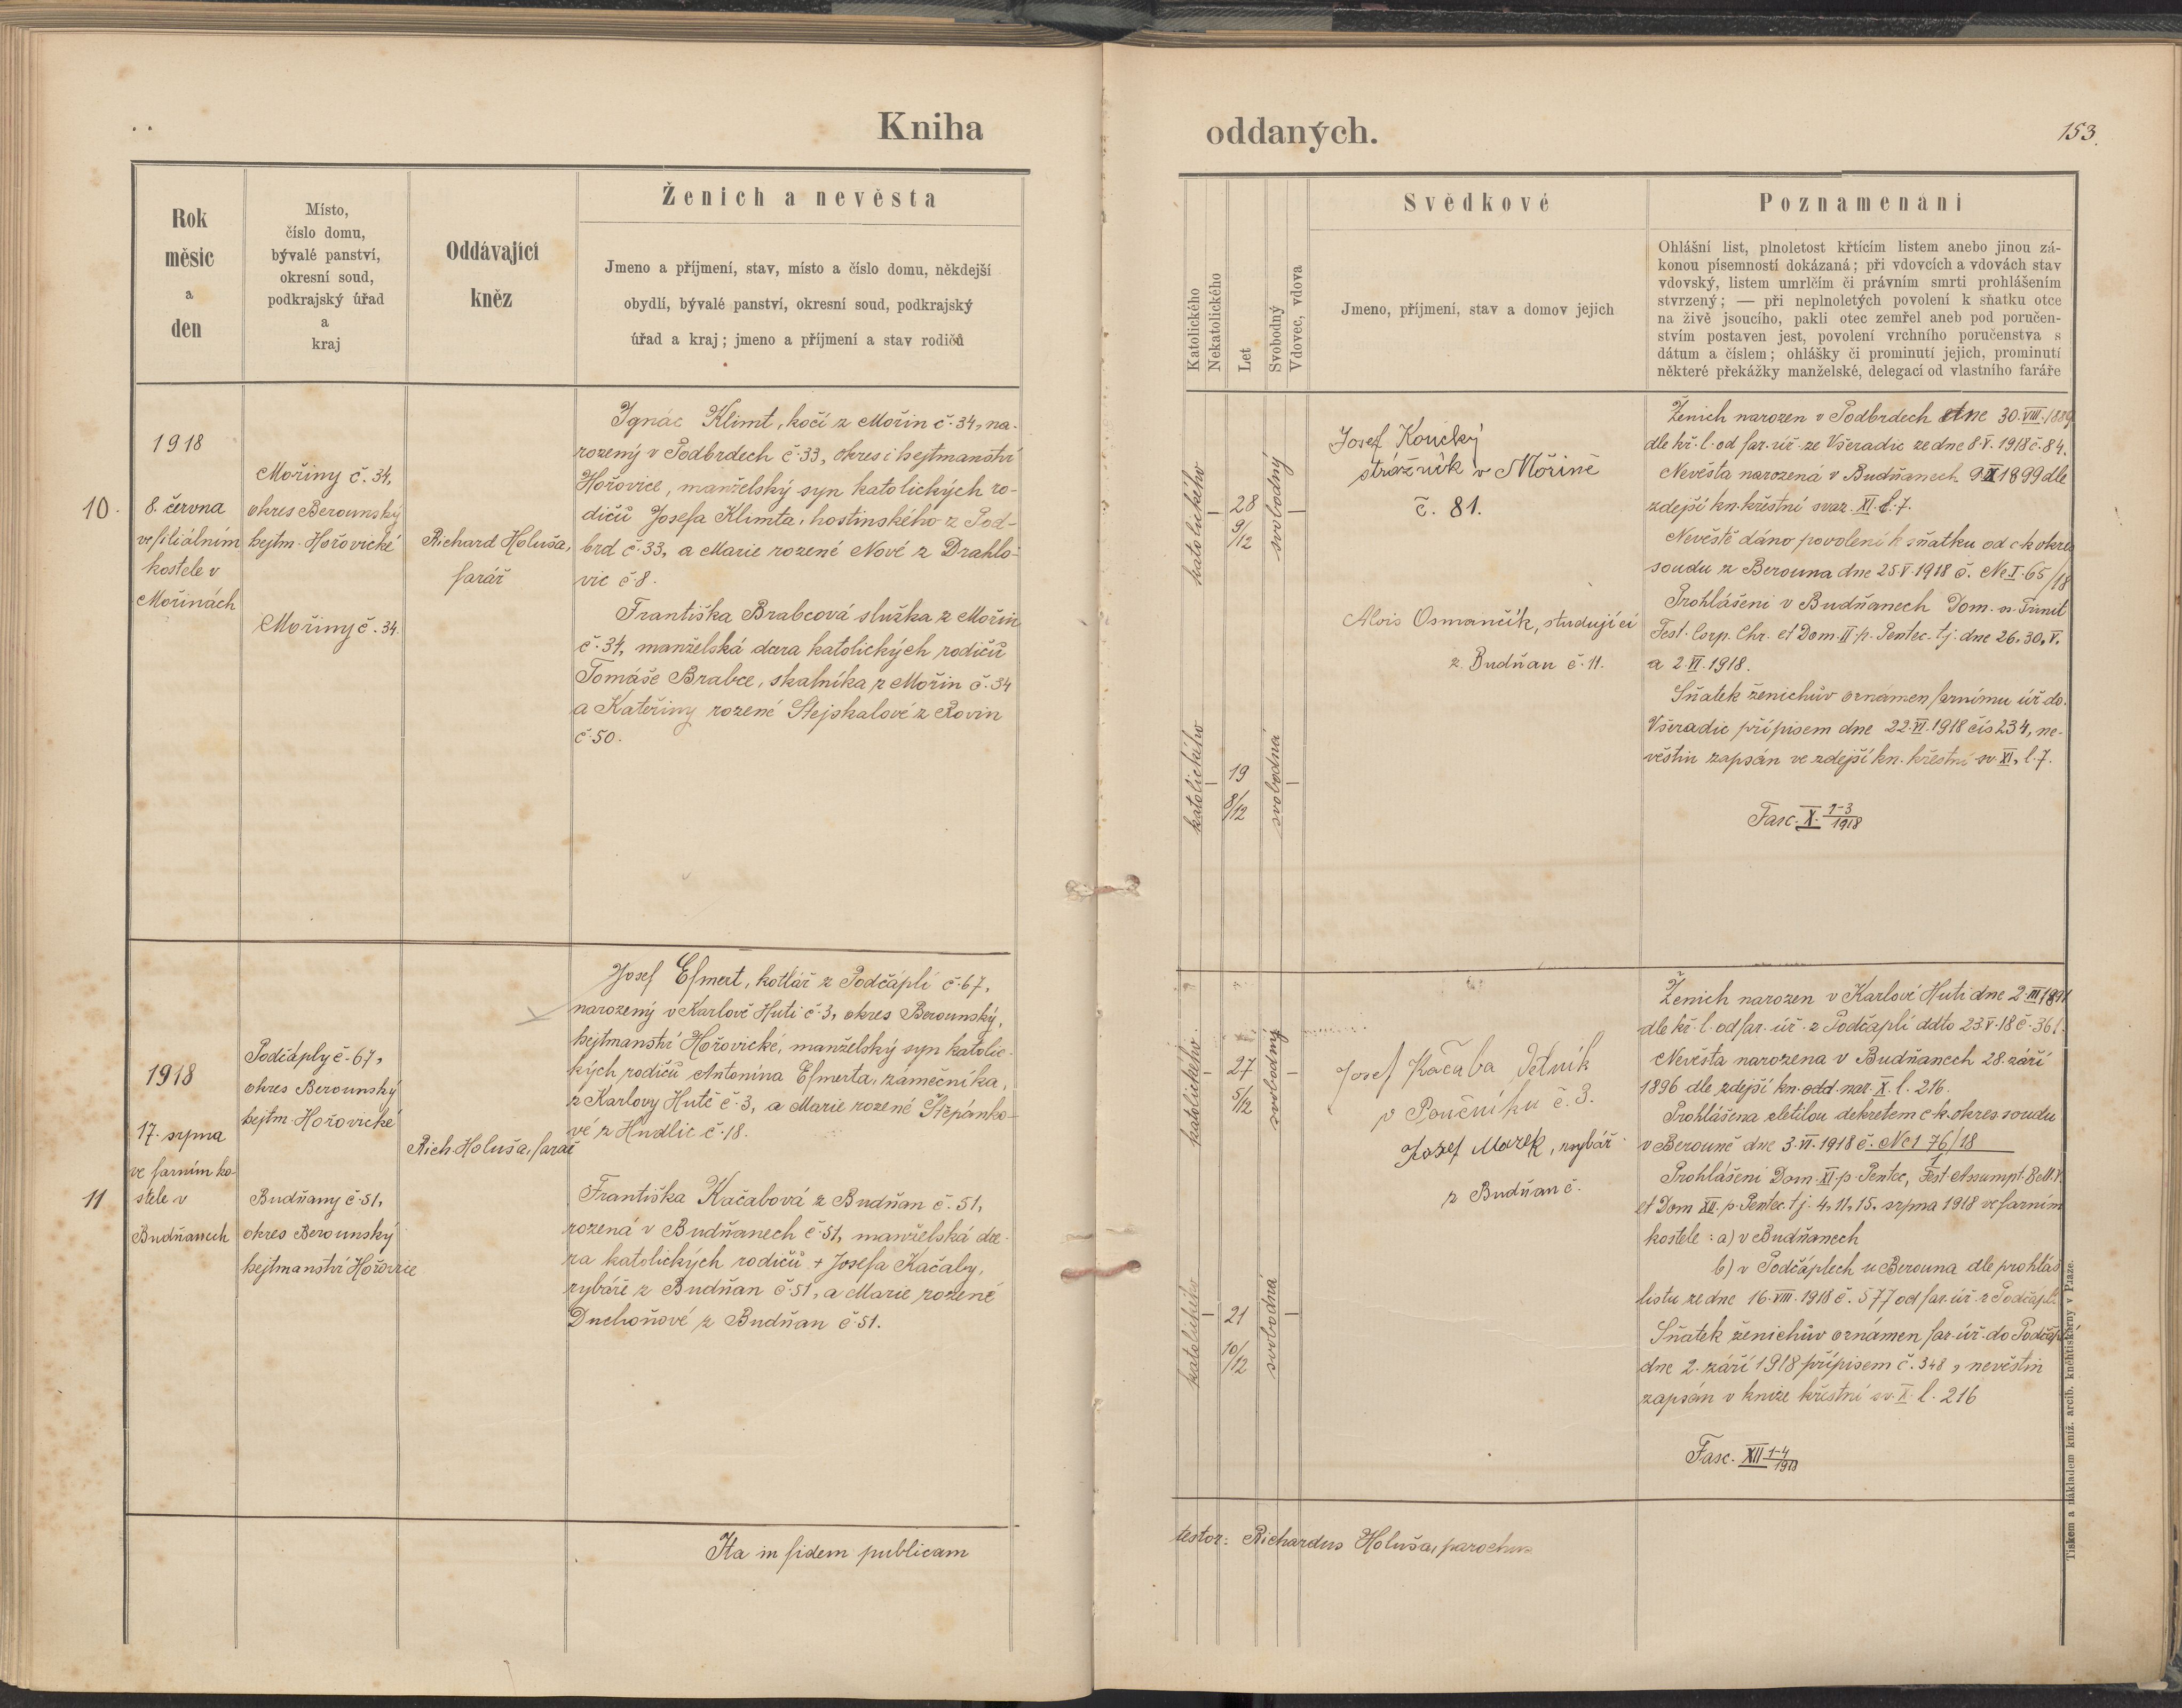 Kniha
oddaných.
153.
Rok
měsíc
a
den
Místo,
číslo domu,
bývalé panství,
okresní soud,
podkrajský úřad
a
kraj
Oddávající
kněz
Ženich a nevěsta
Jmeno a příjmení, stav, místo a číslo domu, někdejší
obydlí, bývalé panství, okresní soud, podkrajský
úřad a kraj; jmeno a příjmení a stav rodičů
Katolického
Nekatolického
Let
Svobodný
Vdovec, vdova
Svědkové
Jmeno, příjmení, stav a domov jejich
Poznamenání
Ohlášní list, plnoletost křtícím listem anebo jinou zá-
konou písemností dokázaná; při vdovcích a vdovách stav
vdovský, listem umrlčím či právním smrti prohlášením
stvrzený; — při neplnoletých povolení k sňatku otce
na živě jsoucího, pakli otec zemřel aneb pod poručen-
stvím postaven jest, povolení vrchního poručenstva s
dátum a číslem; ohlášky či prominutí jejich, prominutí
některé překážky manželské, delegací od vlastního faráře
10.
1918
8. června
ve filiálním
kostele v
Mořinách
Mořiny č. 34,
okres Berounský
hejtm. Hořovické
Mořiny č. 34.
Richard Holuša,
farář
Ignác Klimt, kočí z Mořin č. 34, na-
rozený v Podbrdech č. 33, okres i hejtmanství
Hořovice, manželský syn katolických ro-
dičů Josefa Klimta, hostinského z Pod-
brd č. 33, a Marie rozené Nové z Drahlo-
vic č 8.
Františka Brabcová služka z Mořin
č. 34, manželská dcera katolických rodičů
Tomáše Brabce, skalníka z Mořin č. 34
a Kateřiny rozené Stejskalové z Rovin
č. 50.
katolického
—
28
9/12
svobodný
—
katolického
—
19
8/12
svobodná
—
Josef Koucký
strážník v Mořině
č. 81.
Alois Osmančík, studující
z Budňan č. 11.
Ženich narozen v Podbrdech dne 30. VIII. 1889
dle kř. l. od far. úř. ze Všeradic ze dne 8. V. 1918 č. 84.
Nevěsta narozená v Budňanech 9 X 1899 dle
zdejší kn. křestní svaz. XI. l. 7.
Nevěstě dáno povolení k sňatku od c k okres
soudu z Berouna dne 25 V. 1918 č. Nc I. 65/18
Prohlášeni v Budňanech Dom. ss. Trinit
Fest. Corp. Chr. et Dom. II. p. Pentec. tj. dne 26. 30. V.
a 2. VI. 1918.
Sňatek ženichův oznámen farnímu úř do
Všeradic přípisem dne 22. VI. 1918 čís 234, ne-
věstin zapsán ve zdejší kn. křestní sv. XI, l. 7.
Fasc. X. 1-3/1918
11
1918
17. srpna
ve farním ko-
stele v
Budňanech
Podčáply č. 67,
okres Berounský
hejtm. Hořovické
Budňany č. 51,
okres Berounský
hejtmanství Hořovice
Rich. Holuša, farář
Josef Esmert, kotlář z Podčáplí č. 67,
narozený v Karlově Huti č. 3, okres Berounský,
hejtmanství Hořovické, manželský syn katolic-
kých rodičů Antonína Esmerta, zámečníka,
z Karlovy Hutě č. 3, a Marie rozené Štěpánko-
vé z Hudlic č. 18.
Františka Kačabová z Budňan č. 51,
rozená v Budňanech č. 51, manželská dce-
ra katolických rodičů + Josefa Kačaby,
rybáře z Budňan č. 51, a Marie rozené
Duchoňové z Budňan č. 51.
katolického
—
27
5/12
svobodný
—
katolického
—
21
10/12
svobodná
—
Josef Kačaba
v Poučníku č. 3.
Josef Marek, rybář
z Budňan č.
Ženich narozen v Karlově Huti dne 2. III 1891
dle kř. l. od far. úř. z Podčáplí ddto 23. V. 18 č. 361.
Nevěsta narozena v Budňanech 28. září
1896 dle zdejší kn. odd. nar. X. l. 216.
Prohlášena zletilou dekretem c k. okres. soudu
v Berouně dne 3. VI. 1918 č. Nc 1 76/18
1
Prohlášeni Dom. XI. p. Pentec, Fest. Assumpt. B. M. V.
et Dom XII. p. Pentec. t j. 4, 11, 15. srpna 1918 ve farním
kostele: a) v Budňanech
b) v Podčáplech u Berouna dle prohláš.
listu ze dne 16. VIII. 1918 č. 577 od far. úř. z Podčáplí
Sňatek ženichův oznámen far. úř. do Podčáplí
dne 2. září 1918 přípisem č. 348, nevěstin
zapsán v knize křestní sv. X. l. 216
Fasc. XII 1-4/1918
Ita in fidem publicam
testor: Richardus Holuša, parochus
Tiskem a nákladem kníž. arcib. knihtiskárny v Praze.